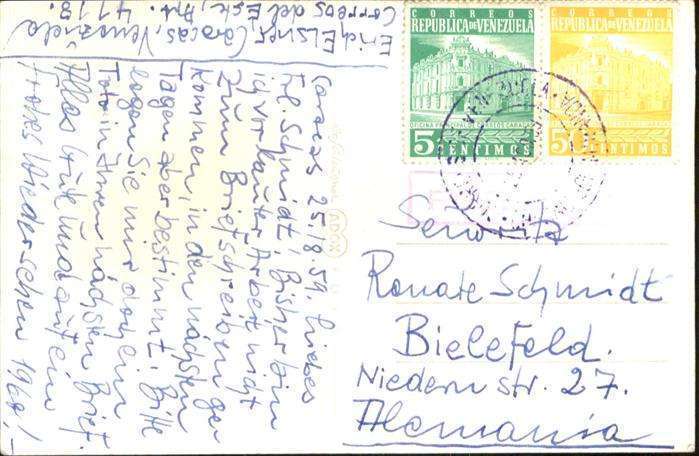 Erich Elsner, Caracas, Venezuela
Correos del Este, Apt. 4113.
Caracas 25./8.59. Liebes
Frl. Schmidt! Bisher bin
ich vor lauter Arbeit nicht
zum Briefschreiben ge
kommen, in den nächsten
Tagen aber bestimmt. Bitte
legen Sie mir doch ein
Foto in Ihren nächsten Brief.
Alles Gute und auf ein
frohes Wiedersehen 1960!-
CORREOS
REPUBLICA DE VENEZUELA
OFICINA PRINCIPAL DE CORREOS CARACAS
5 CENTIMOS
CORREOS
REPUBLICA DE VENEZUELA
50 CENTIMOS
Señorita
Renate Schmidt
Bielefeld.
Niedernstr. 27.
Alemania